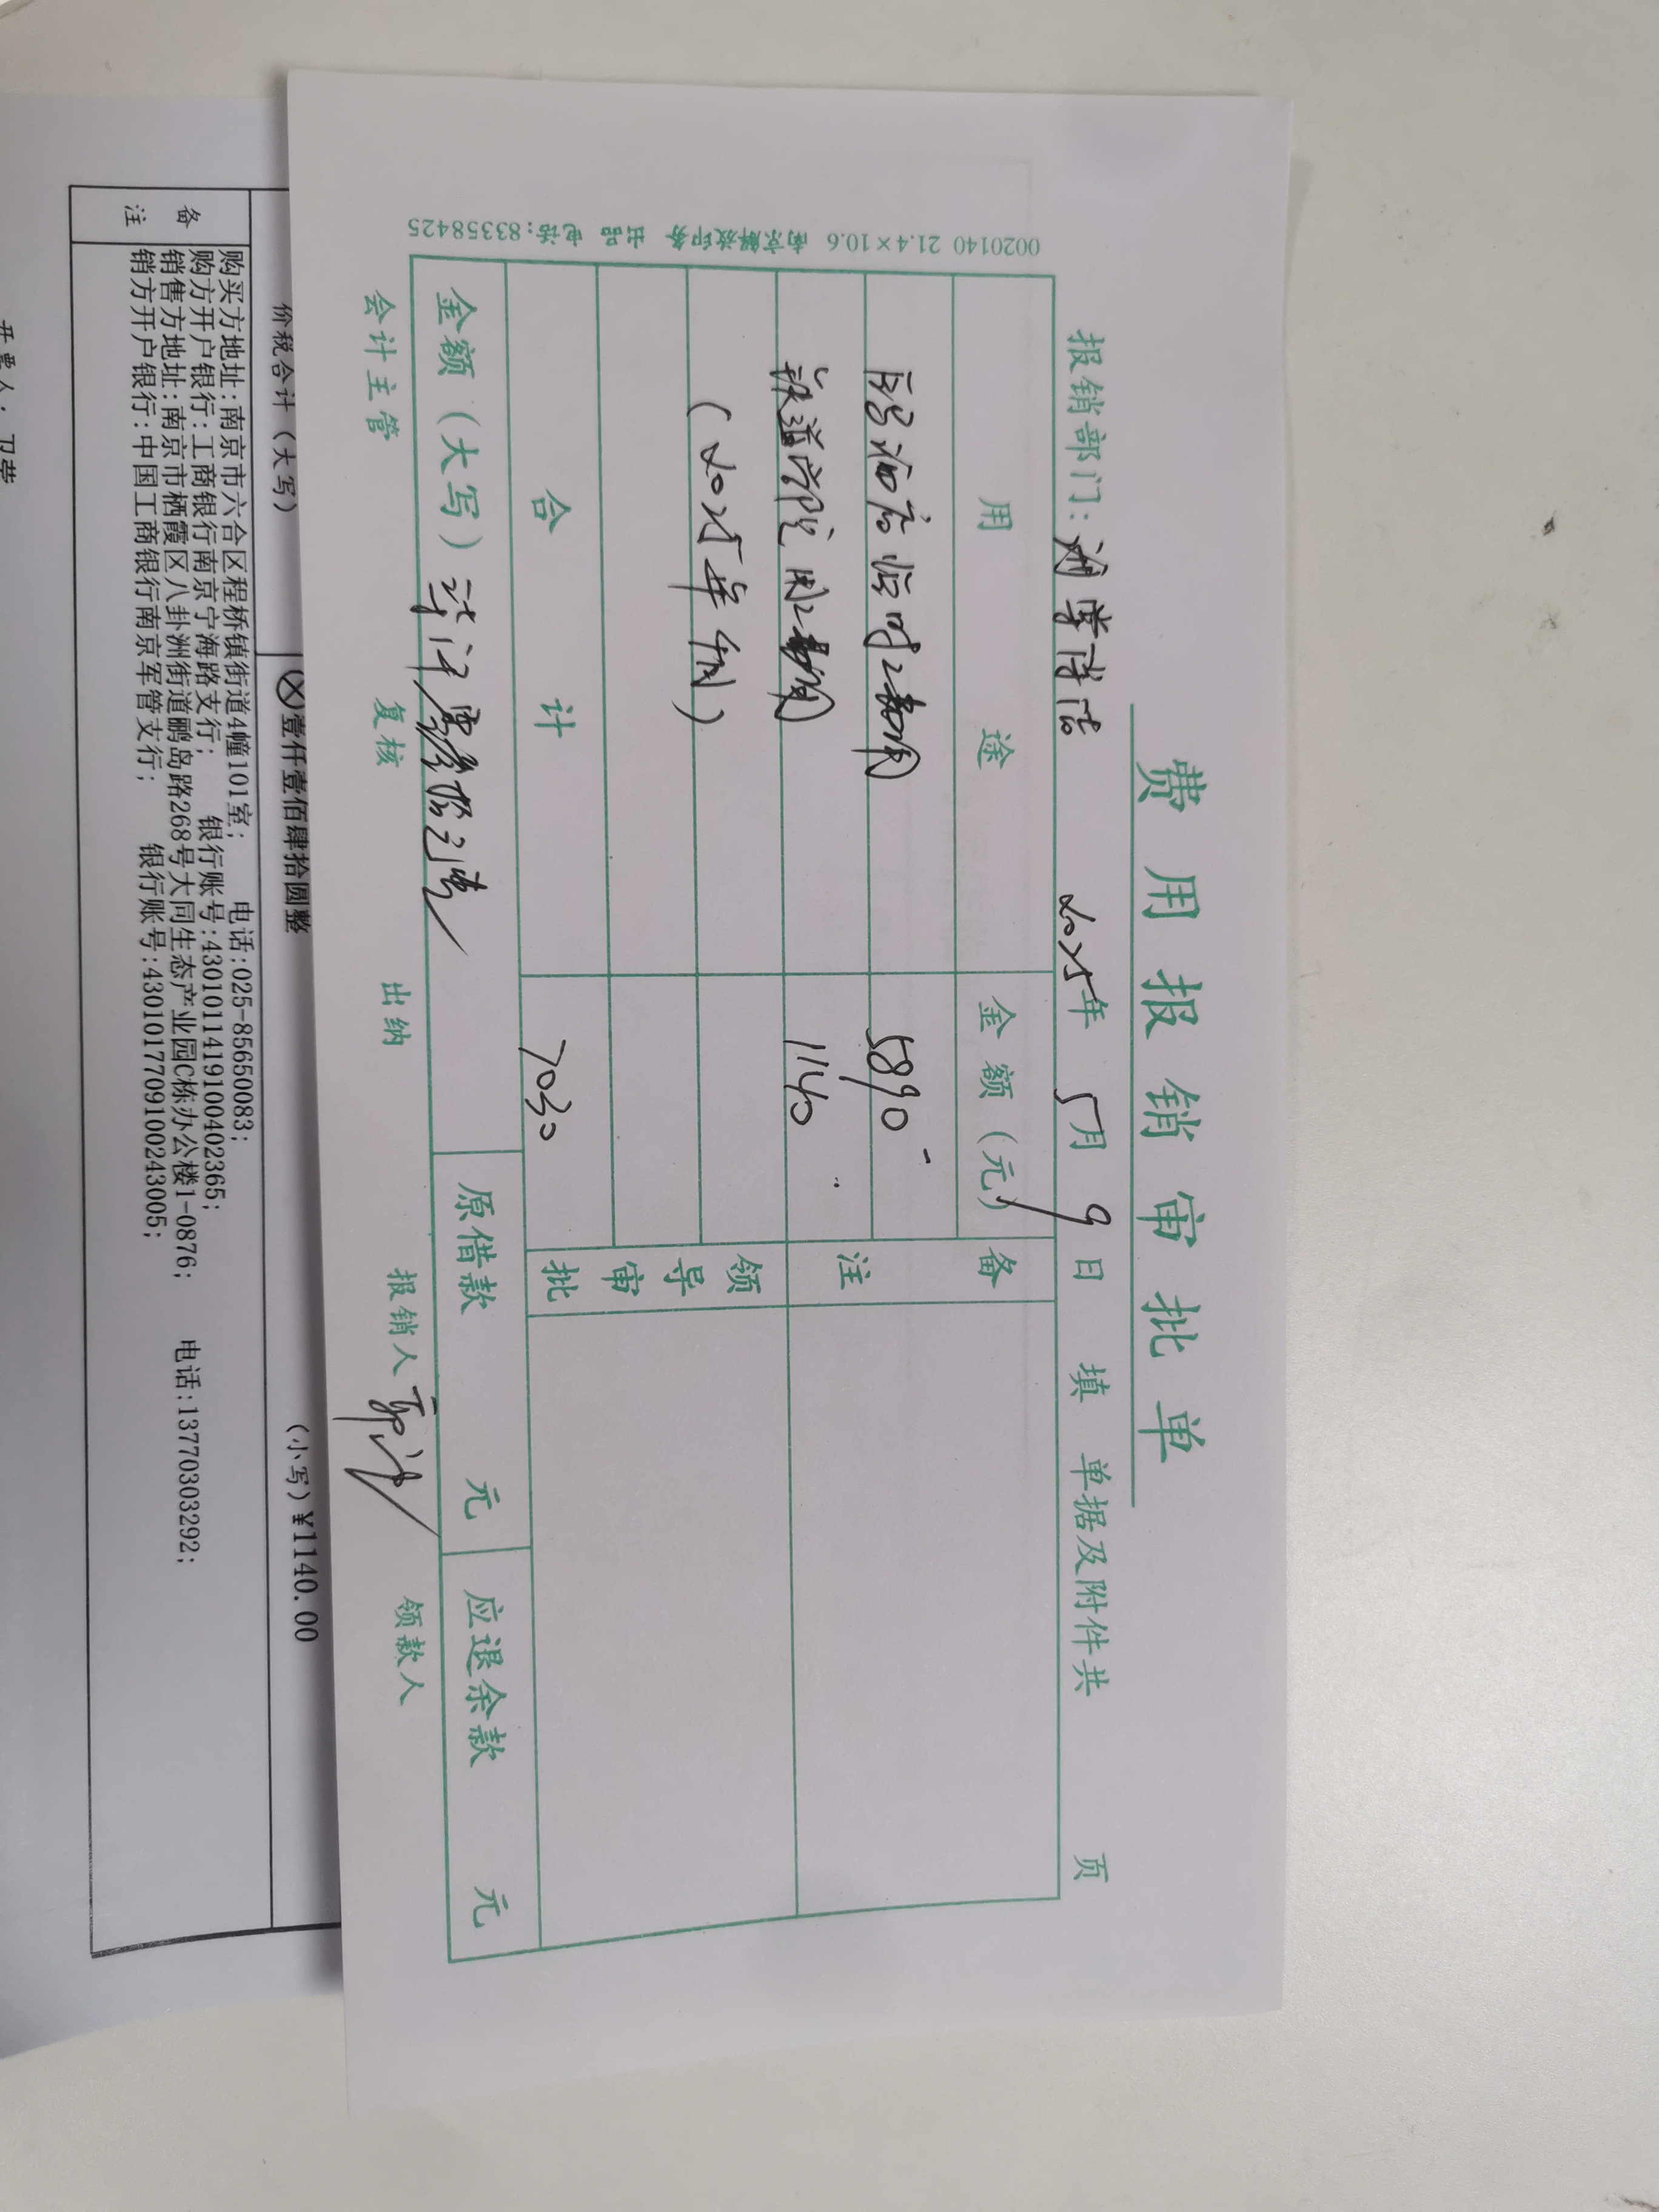 费用报销审批单
报销部门: 2025年 5月 9日 填 单据及附件共 页
用 途 金 额 (元) 备
临时工费用 5890 注
铁道学院用工费用 1140
(2025年4月) 领导审批
合 计 7030
金额(大写)柒仟零叁拾元整 原借款 元 应退余款 元
会计主管 复核 出纳 报销人 领款人
0020140 21.4×10.6 南京解放印务 出品 电话:83358425
价税合计(大写) ⊗壹仟壹佰肆拾圆整 (小写)¥1140.00
备
注
购买方地址:南京市六合区程桥镇街道4幢101室; 电话:025-85650083;
购方开户银行:工商银行南京宁海路支行; 银行账号:4301011419100402365;
销售方地址:南京市栖霞区八卦洲街道鹂岛路268号大同生态产业园C栋办公楼1-0876; 电话:13770303292;
销方开户银行:中国工商银行南京军管支行; 银行账号:4301017709100243005;
开票人: